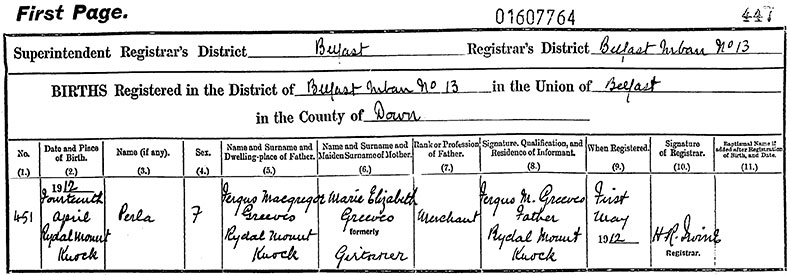 First Page. 01607764 447
Superintendent Registrar's District Belfast Registrar's District Belfast Urban No 13
BIRTHS Registered in the District of Belfast Urban No 13 in the Union of Belfast
in the County of Down
No. Date and Place of Birth. Name (if any). Sex. Name and Surname and Dwelling-place of Father. Name and Surname and Maiden Surname of Mother. Rank or Profession of Father. Signature, Qualification, and Residence of Informant. When Registered. Signature of Registrar. Baptismal Name if added after Registration of Birth, and Date.
(1.) (2.) (3.) (4.) (5.) (6.) (7.) (8.) (9.) (10.) (11.)
1912 Fergus Macgregor Marie Elizabeth Fergus M. Greeves First
Fourteenth Greeves Greeves Father May
451 April Perla F Rydal Mount formerly Merchant Rydal Mount 1912 H.R. Irvine
Rydal Mount Knock Knock Registrar.
Knock